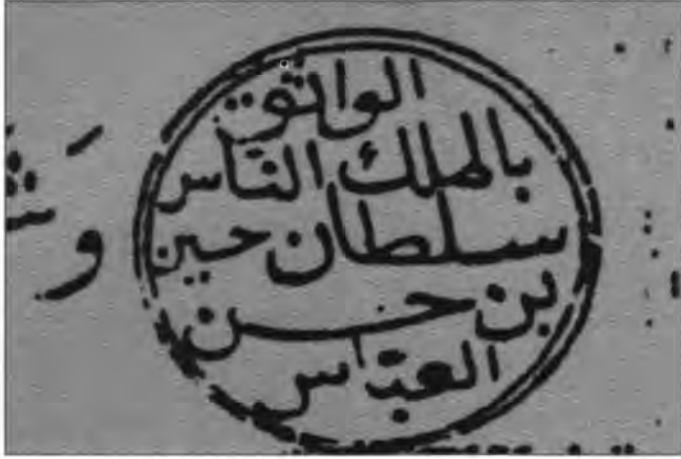 الواثق
بالملك الناس
سلطان حين
بن حسن
العباس